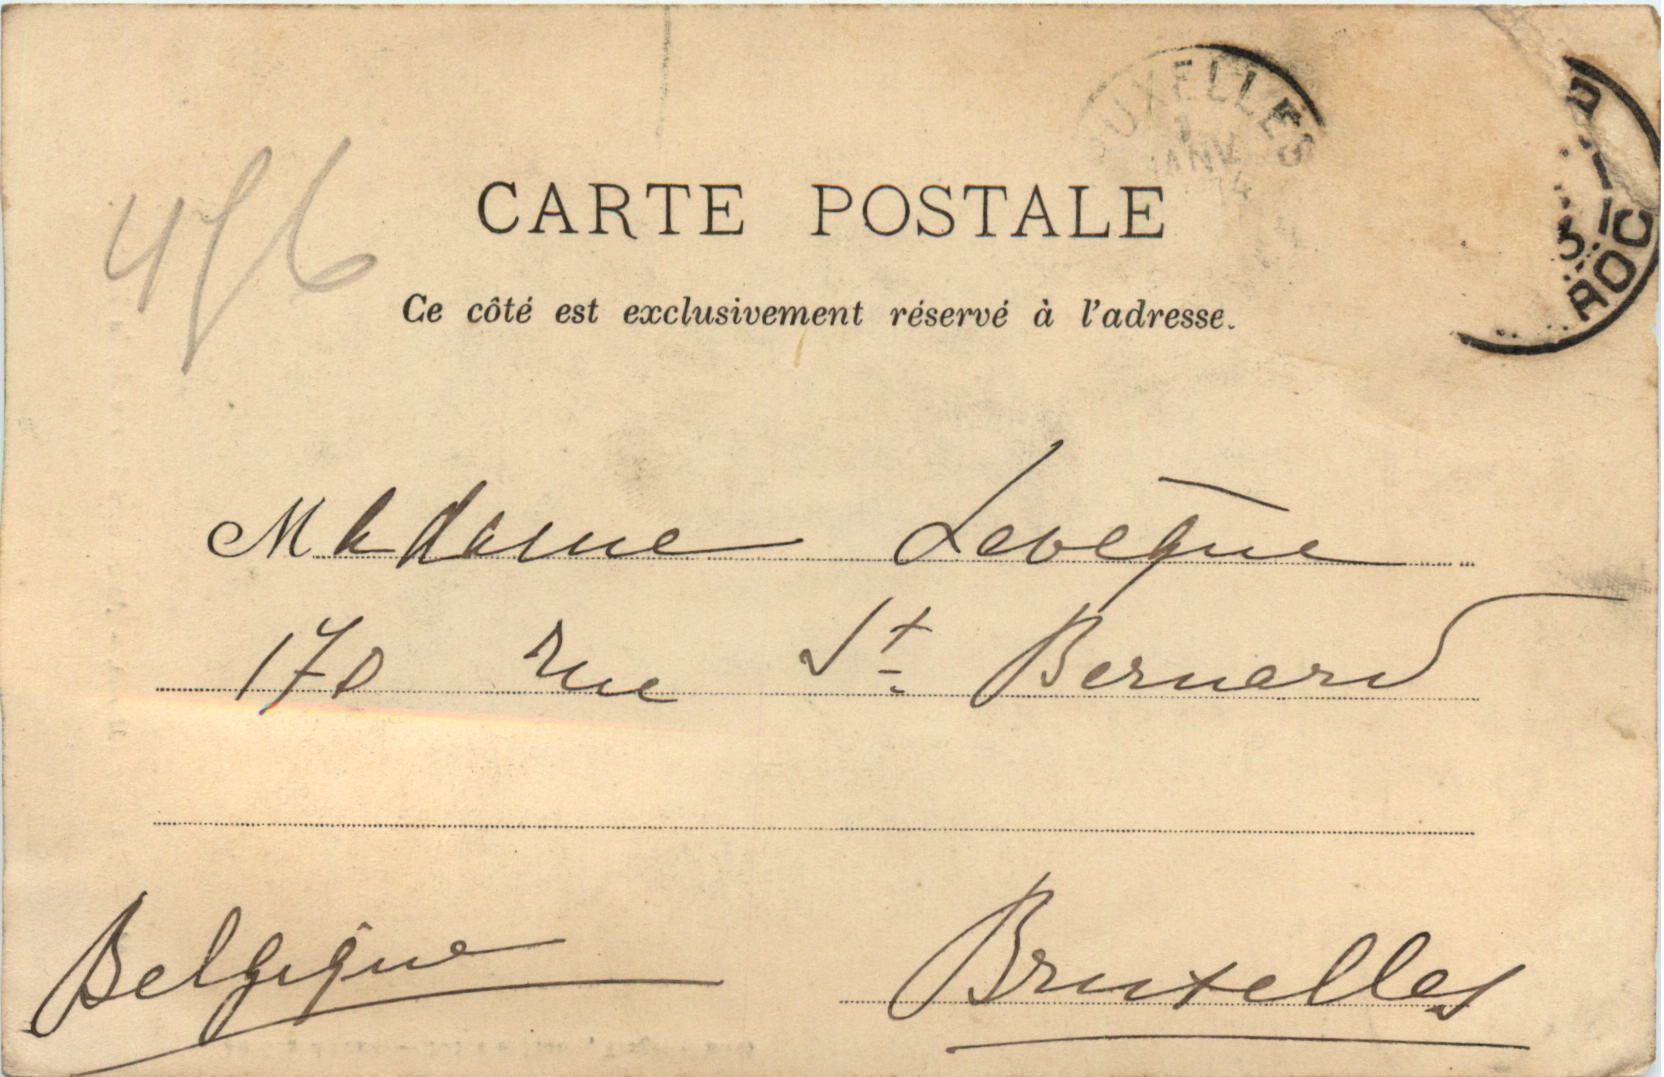 UXELLES
1
JANV
14
ROC
476
CARTE POSTALE
Ce côté est exclusivement réservé à l'adresse.
Madame Levêque
170 rue St Bernard
Belgique
Bruxelles